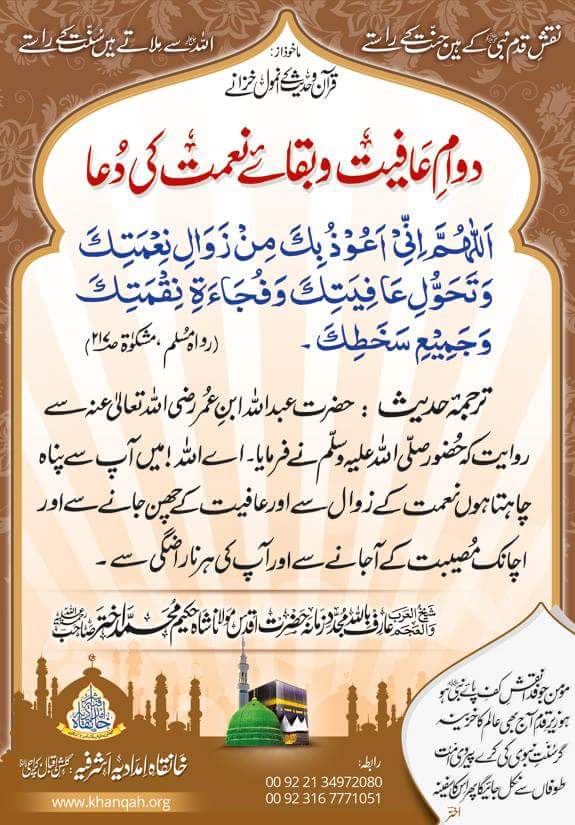 نقشِ قدم نبی ﷺ کے ہیں جنّت کے راستے
اللہ ﷻ سے ملاتے ہیں سُنّت کے راستے
ماخوذ از:
قرآن و حدیث کے انمول خزانے
دوامِ عافیت و بقائے نعمت کی دُعا
اَللّٰهُمَّ اِنِّیْ اَعُوْذُ بِكَ مِنْ زَوَالِ نِعْمَتِكَ
وَتَحَوُّلِ عَافِيَتِكَ وَفُجَاءَةِ نِقْمَتِكَ
وَجَمِيْعِ سَخَطِكَ۔ (رواہ مُسلم، مشکوٰۃ صـ ۲۱۷)
ترجمۂ حدیث : حضرت عبد اللہ ابنِ عُمر رضی اللہ تعالیٰ عنہ سے
روایت کہ حُضور صلّی اللہ علیہ وسلّم نے فرمایا۔ اے اللہ! میں آپ سے پناہ
چاہتا ہوں نعمت کے زوال سے اور عافیت کے چھن جانے سے اور
اچانک مُصیبت کے آجانے سے اور آپ کی ہر ناراضگی سے۔
شیخ العرب والعجم عارف باللہ مجددِ زمانہ حضرت اقدس مولانا شاہ حکیم محمد اختر صاحب
مؤمن جو فدا نقشِ کفِ پائے نبی ہو
ہو زیرِ قدم آج بھی عالم کا خزینہ
گر سنّتِ نبوی کی کرے پیروی اُمّت
طوفاں سے نکل جائے گا پھر اس کا سفینہ
اختر
خانقاہ امدادیہ اشرفیہ: گلشن اقبال، کراچی
www.khanqah.org
رابطہ:
00 92 21 34972080
00 92 316 7771051